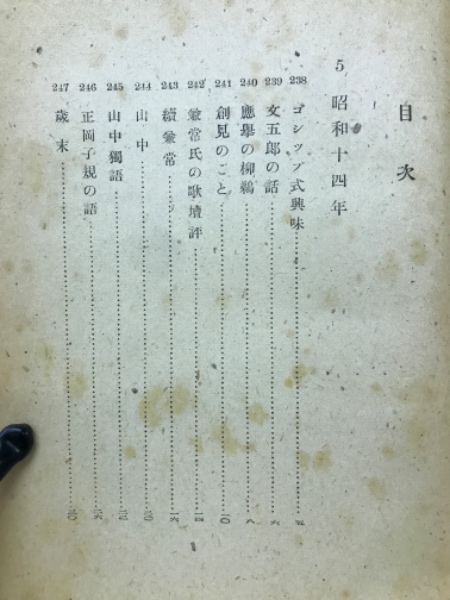 目次
5 昭和十四年
238 ゴシップ式興味
239 文五郎の話 六
240 應擧の柳鵜 八
241 創見のこと 一〇
242 兼常氏の歌壇評 一四
243 續兼常 一六
244 山中 二〇
245 山中獨語 二三
246 正岡子規の語 二六
247 歳末 三〇